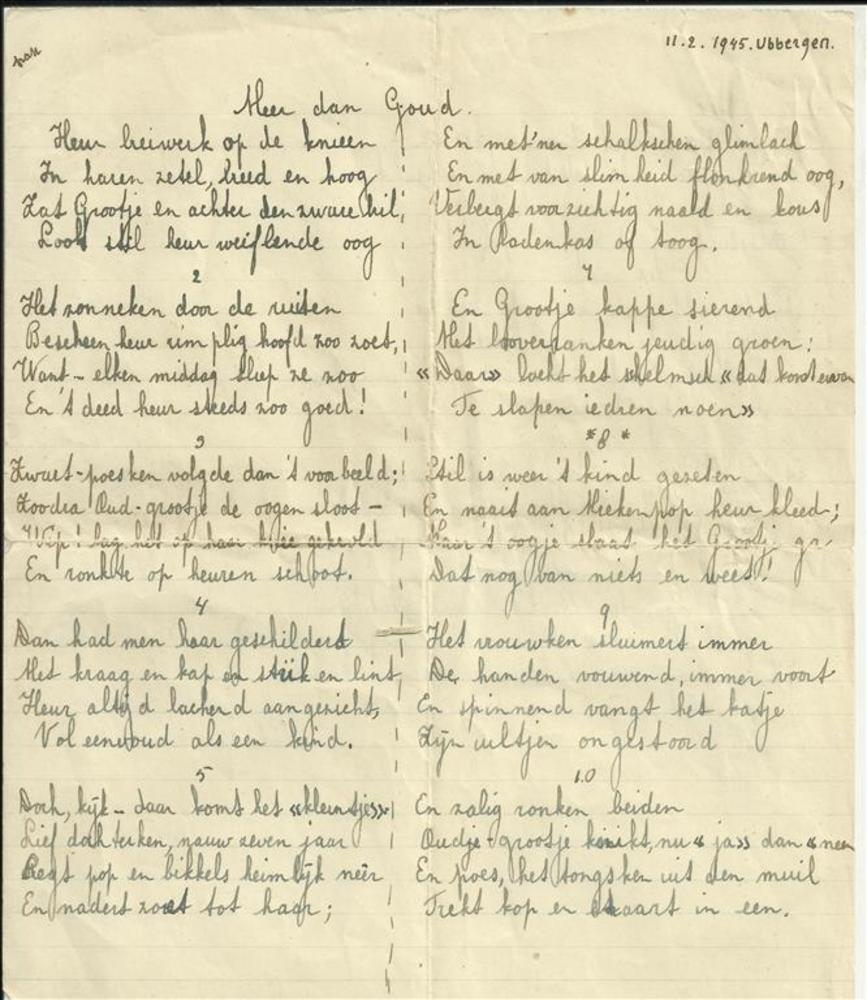 11.2.1945. Ubbergen.
Meer dan Goud.
Heur breiwerk op de knieën
In haren zetel, breed en hoog
Zat Grootje en achter den zware bril,
Look stil heur weiflende oog
2
Het zonneken door de ruiten
Bescheen heur rimplig hoofd zoo zoet,
Want - elken middag sliep ze zoo
En 't deed heur steeds zoo goed!
3
Zwart-poesken volgde dan 't voorbeeld;
Zoodra Oud-grootje de oogen sloot -
Wip! lag het op haar knie gekruld
En ronkte op heuren schoot.
4
Dan had men haar geschilderd
Met kraag en kap en stuk en lint,
Heur altijd lachend aangezicht,
Vol eenvoud als een kind.
5
Doch, kijk - daar komt het «kleintje»
Lief dochterken, nauw zeven jaar
Legt pop en bikkels heimlijk nêer
En nadert zoet tot haar;
En met 'ner schalkschen glimlach
En met van slimheid flonkrend oog,
Verbergt voorzichtig naald en kous
In Ladenkas of toog.
7
En Grootje kappe sierend
Met looverranken jeudig groen:
«Daar» lacht het schelmsch «dat komt ervan
Te slapen iedren noen»
* 8 *
Stil is weer 't kind gezeten
En naait aan Miekenpop heur kleed;
Maar 't oogje slaat het Grootje
Dat nog van niets en weet!
9
Het vrouwken sluimert immer
De handen vouwend, immer voort
En spinnend vangt het katje
Zijn uiltjen ongestoord
10
En zalig ronken beiden
Oudje-grootje knikt, nu «ja» dan «neen
En poes, het tongsken uit den muil
Trekt kop en staart in een.